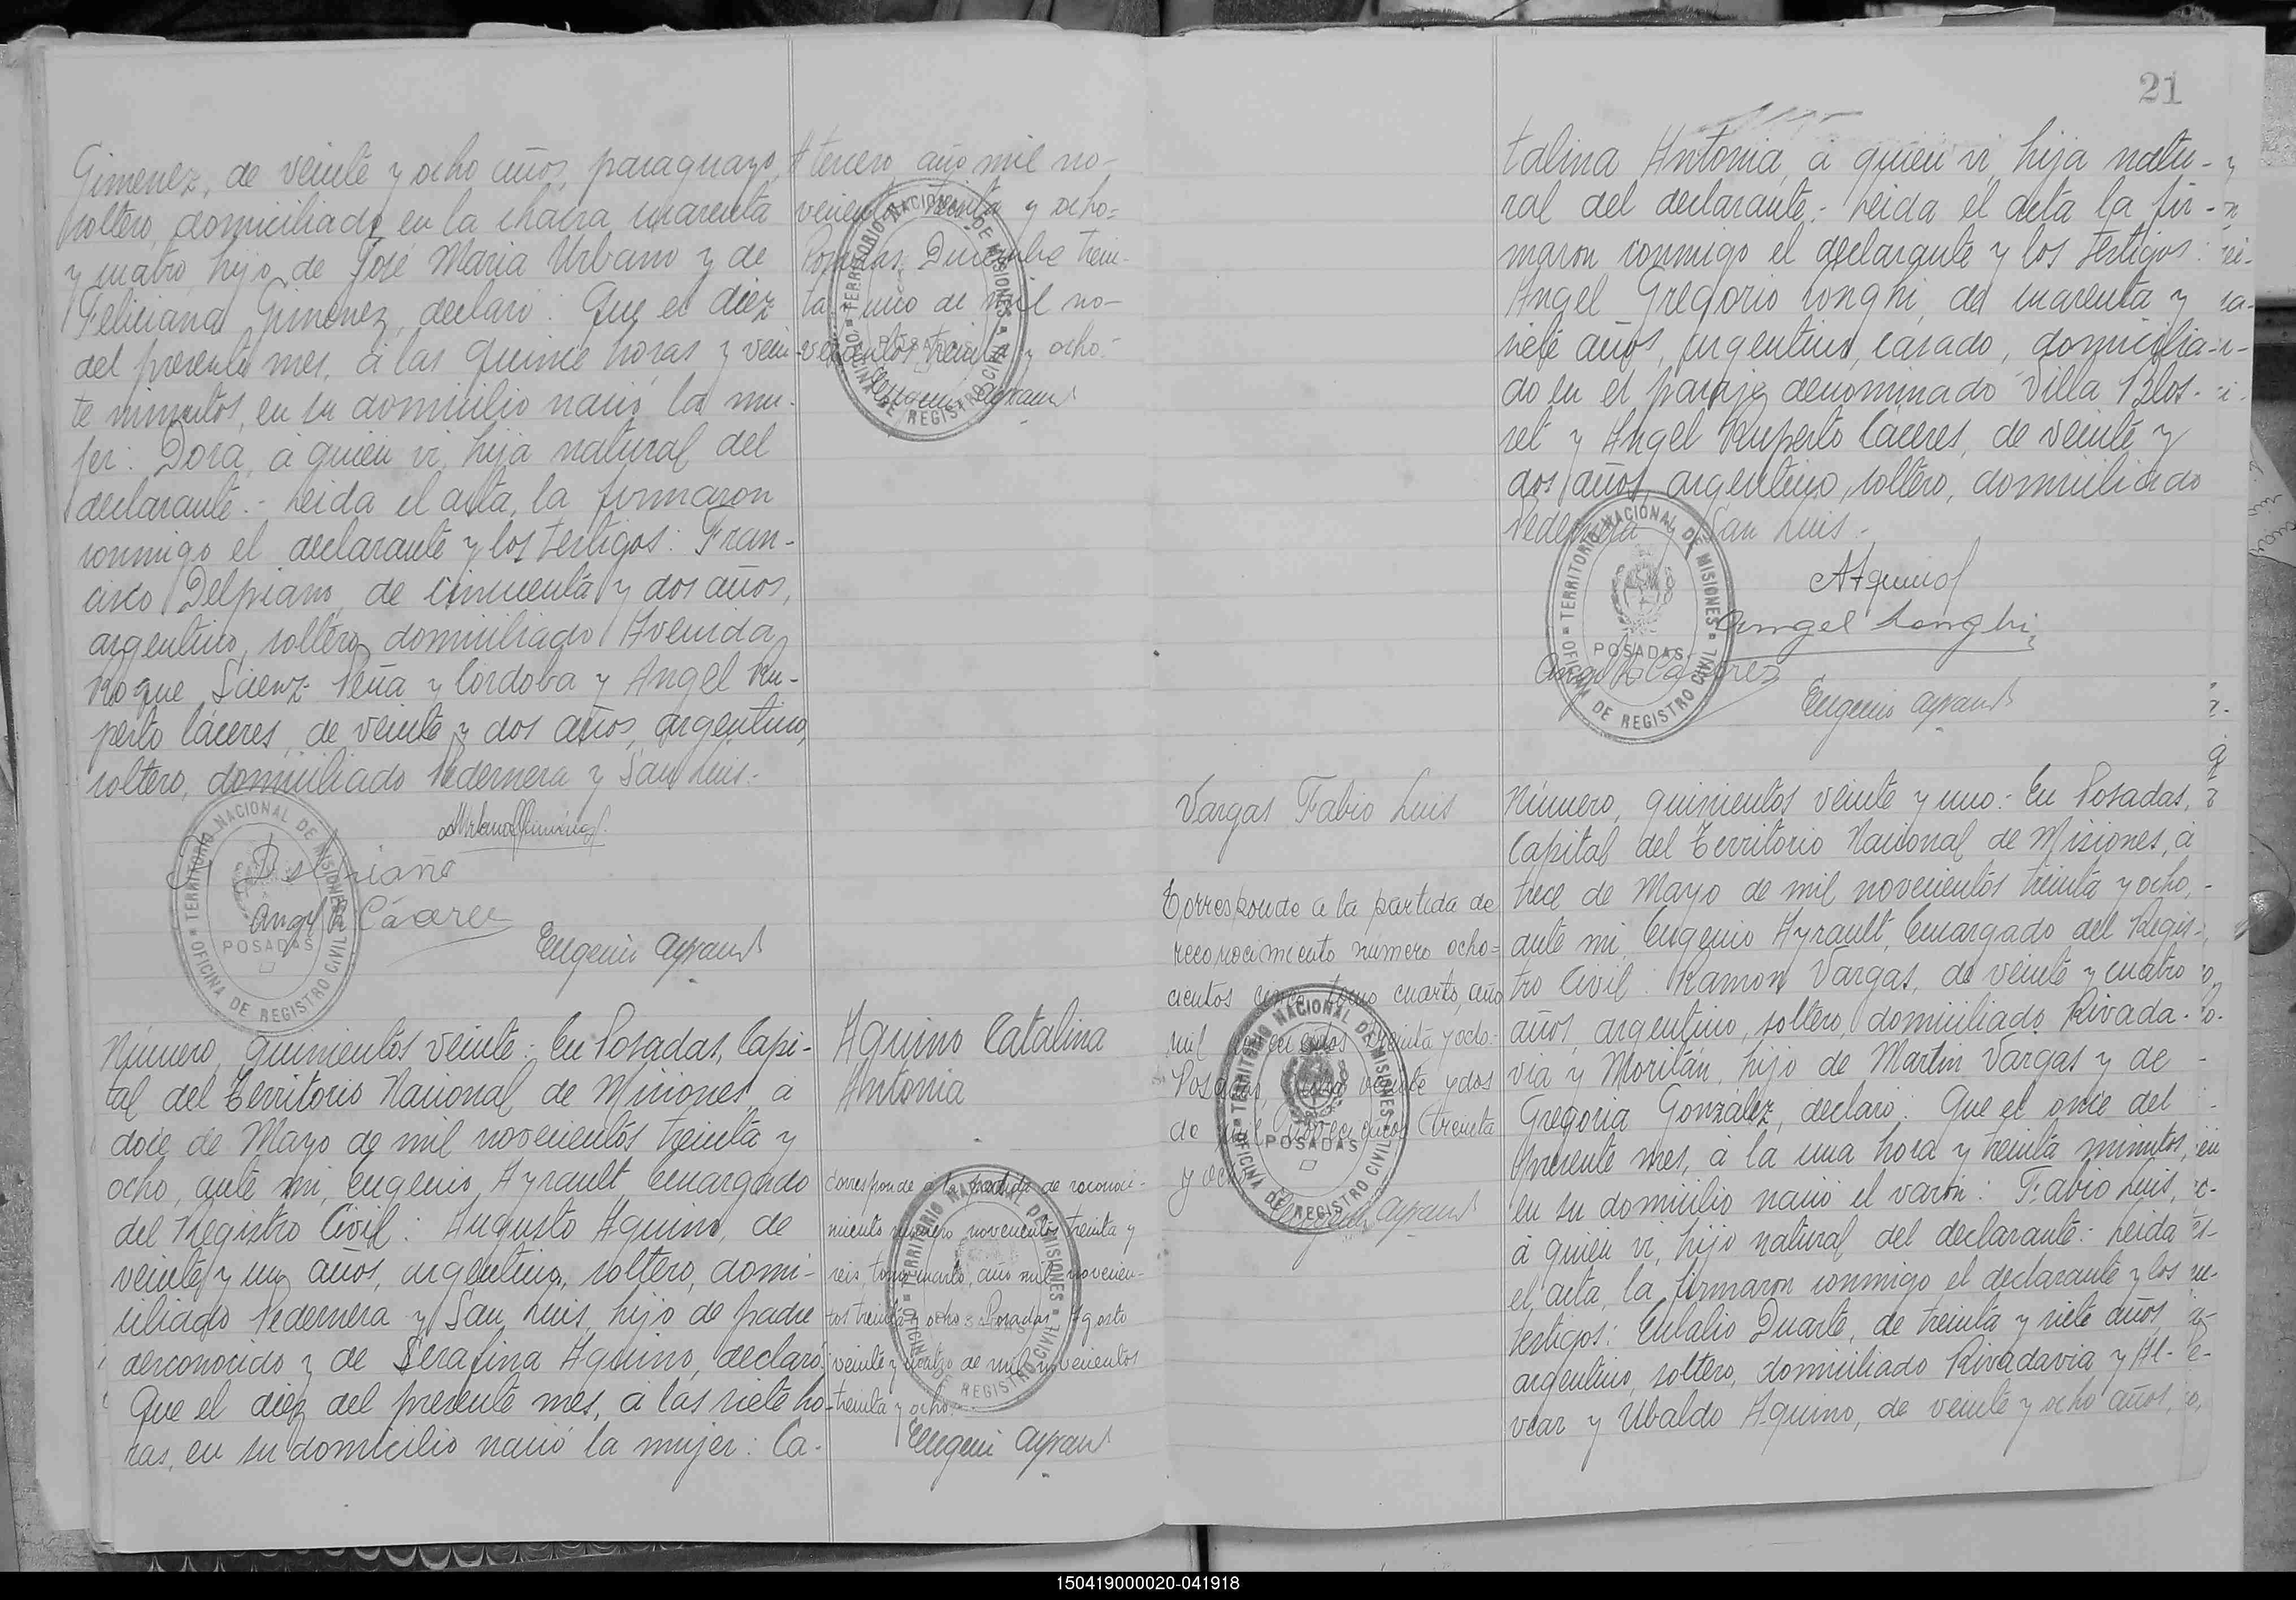 Gimenez, de veinte y ocho años, paraguayo,
soltero, domiciliado en la chacra cuarenta
y cuatro, hijo de José Maria Urbano y de
Feliciana Gimenez, declaró: Que el diez
del presente mes, á las quince horas y vein-
te minutos, en su domicilio nació la mu-
jer: Dora, á quien vi, hija natural del
declarante.- Leida el acta, la firmaron
conmigo el declarante y los testigos: Fran-
cisco Delpiano, de cincuenta y dos años,
argentino, soltero, domiciliado Avenida
Roque Sáenz Peña y Córdoba y Angel Ru-
perto Cáceres, de veinte y dos años, argentino,
soltero, domiciliado Pedernera y San Luis.-
Delpiano
Angel R Cáceres
Eugenio Ayrault
tercero, año mil no-
vecientos treinta y ocho=
Posadas, Diciembre trein-
ta y uno de mil no-
vecientos treinta y ocho.-
Eugenio Ayrault
TERRITORIO NACIONAL DE MISIONES
OFICINA DE REGISTRO CIVIL
POSADAS
Número, quinientos veinte:- En Posadas, Capi-
tal del Territorio Nacional de Misiones, á
doce de Mayo de mil novecientos treinta y
ocho, ante mi, Eugenio Ayrault Encargado
del Registro Civil: Augusto Aquino, de
veinte y un años, argentino, soltero, domi-
ciliado Pedernera y San Luis, hijo de padre
desconocido y de Serafina Aquino, declaró:
Que el diez del presente mes, á las siete ho-
ras, en su domicilio nació la mujer: Ca-
Aquino Catalina
Antonia
Corresponde á la partida de reconoci-
miento número novecientos treinta y
seis, tomo cuarto, año mil novecien-
tos treinta y ocho. Posadas, Agosto
veinte y cuatro de mil novecientos
treinta y ocho.
Eugenio Ayrault
21
talina Antonia, á quien vi, hija natu-
ral del declarante.- Leida el acta la fir-
maron conmigo el declarante y los testigos:
Angel Gregorio Longhi, de cuarenta y
siete años, argentino, casado, domicilia-
do en el paraje denominado Villa Blos-
set y Angel Ruperto Cáceres, de veinte y
dos años, argentino, soltero, domiciliado
Pedernera y San Luis.-
A Aquino
Angel Longhi
Angel R Cáceres
Eugenio Ayrault
TERRITORIO NACIONAL DE MISIONES
OFICINA DE REGISTRO CIVIL
POSADAS
Vargas Fabio Luis
Corresponde a la partida de
reconocimiento número ocho=
cientos cinco tomo cuarto, año
mil novecientos treinta y ocho.-
Posadas, veinte y dos
de mil novecientos treinta
y ocho
Eugenio Ayrault
Número, quinientos veinte y uno:- En Posadas,
Capital del Territorio Nacional de Misiones, á
trece de Mayo de mil novecientos treinta y ocho,
ante mi, Eugenio Ayrault, Encargado del Regis-
tro Civil: Ramon Vargas, de veinte y cuatro
años, argentino, soltero, domiciliado Rivada-
via y Moritán, hijo de Martin Vargas y de
Gregoria Gonzalez, declaró: Que el once del
presente mes, á la una hora y treinta minutos,
en su domicilio nació el varón: Fabio Luis,
á quien vi, hijo natural del declarante.- Leida
el acta, la firmaron conmigo el declarante y los
testigos: Eulalio Duarte, de treinta y siete años,
argentino, soltero, domiciliado Rivadavia y Al-
vear y Ubaldo Aquino, de veinte y ocho años,
150419000020-041918